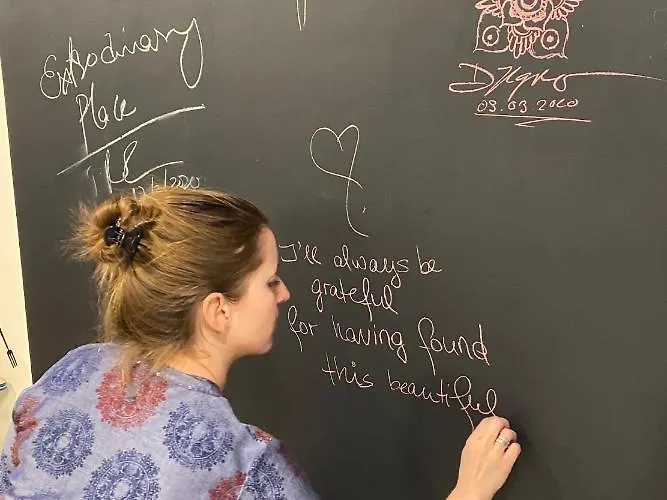 Extrodinary
Place
09.03 2020
I'll always be
grateful
for having found
this beautiful